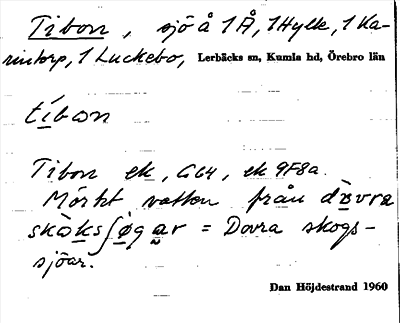 Tibon, sjö å 1 Å, 1 Hylle, 1 Ka-
rintorp, 1 Luckebo, Lerbäcks sn, Kumla hd, Örebro län
tíbon
Tibon ek, G64, ek 9F8a.
Mörkt vatten från dòvra
skòksʃøgar = Dovra skogs-
sjöar.
Dan Höjdestrand 1960